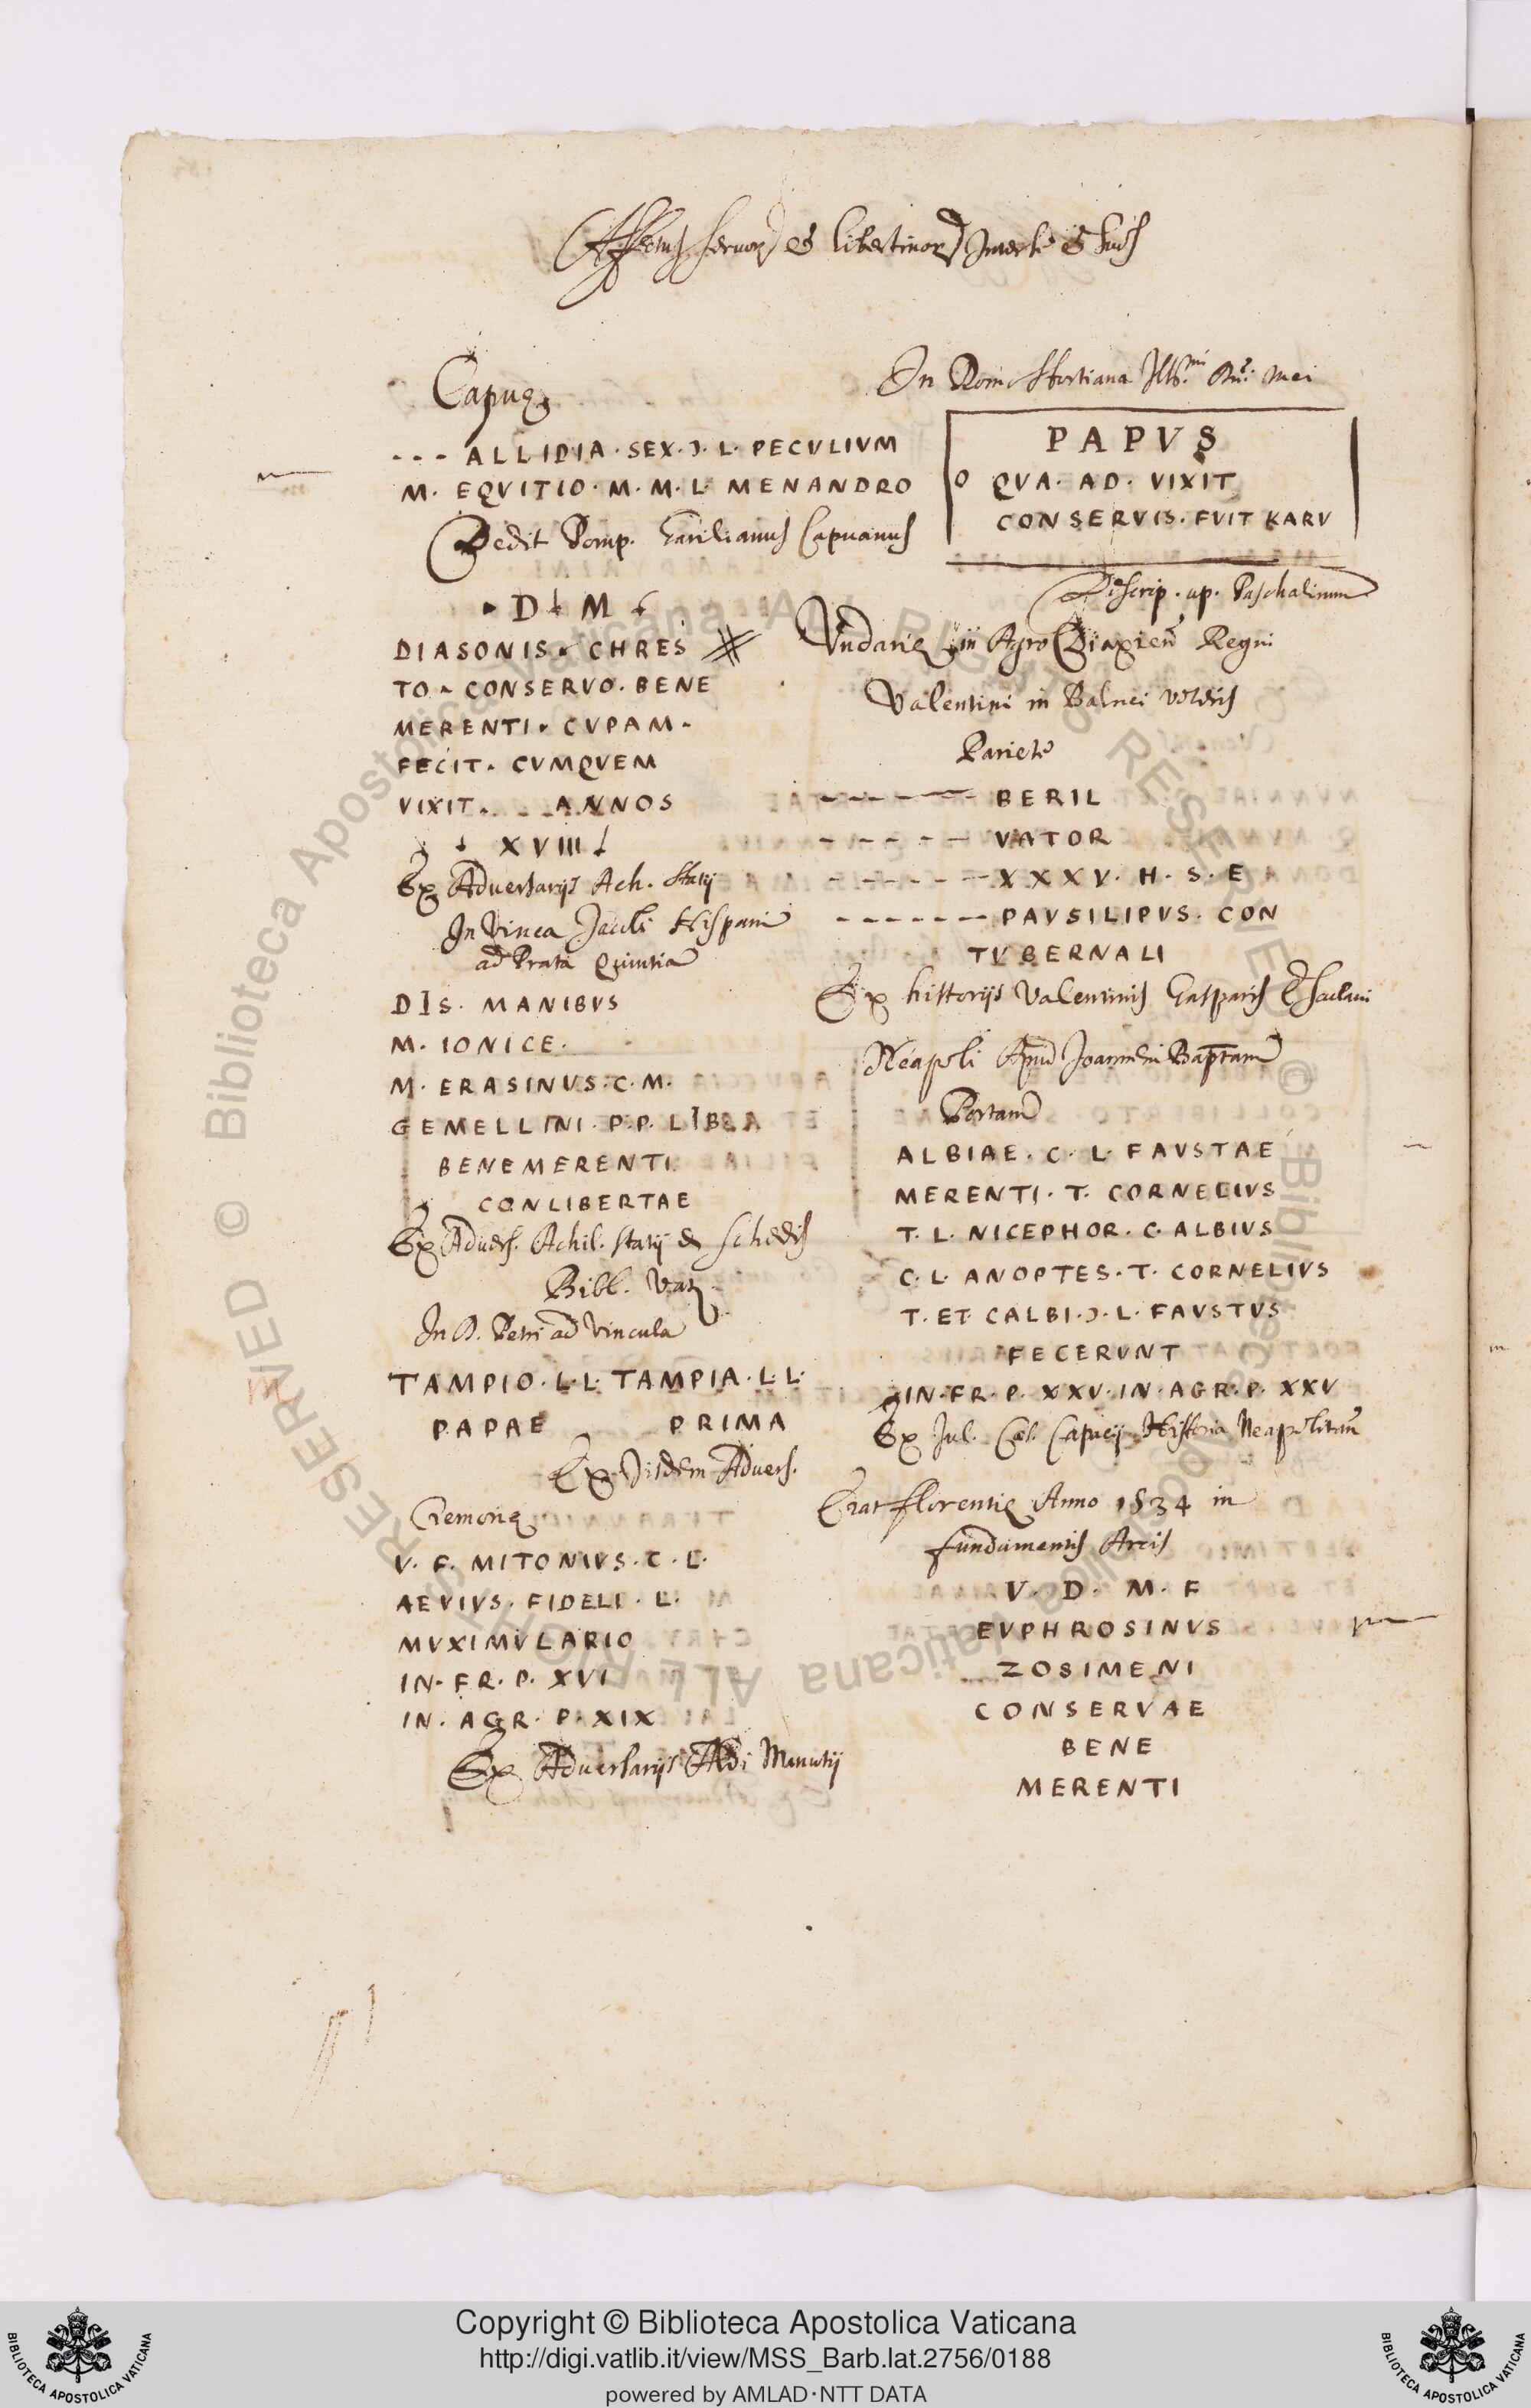 Affectus servor et libertinor Inter se et suos
Capuę
- - - ALLIDIA · SEX · Ɔ · L · PECVLIVM
M · EQVITIO · M · M · L · MENANDRO
Dedit Pomp. Garilianus Capuanus
D M
DIASONIS · CHRES
TO · CONSERVO · BENE
MERENTI · CVPAM ·
FECIT · CVMQVEM
VIXIT · ANNOS
XVIII
Ex Adversarijs Ach. Statij
In Vinea Jacobi Hispani
ad Prata Quintia
DIS · MANIBVS
M · IONICE ·
M · ERASINVS · C · M ·
GEMELLINI · P · P · LIBLA
BENEMERENTI
CONLIBERTAE
Ex Advers. Achil. Statij & Schedis
Bibl. Vat.
In D. Petri ad Vincula
TAMPIO · L · L · TAMPIA · L · L ·
PAPAE PRIMA
Ex Iisdem Advers.
Cremonę
V · F · MITONIVS · C · L ·
AEVIVS · FIDELI · L ·
MVXIMVLARIO
IN · FR · P · XVI
IN · AGR · P · XIX
Ex Adversarijs Aldi Manutij
In Domo Sfortiana Mei
PAPVS
O QVA · AD · VIXIT
CONSERVIS · FVIT KARV
Descrip. ap. Paschalinum
Vndarię in Agro Regni
Valentini in Balnei veteris
Pariete
- - - - - BERIL
- - - - - VATOR
- - - - - XXXV · H · S · E
- - - - - - PAVSILIPVS · CON
TVBERNALI
Ex historijs Valentinis Gasparis Escolani
Neapoli Apud Joannem Baptam
Portam
ALBIAE · C · L · FAVSTAE
MERENTI · T · CORNELIVS
T · L · NICEPHOR · C · ALBIVS
C · L · ANOPTES · T · CORNELIVS
T · ET · CALBI · Ɔ · L · FAVSTVS
FECERVNT
IN · FR · P · XXV · IN · AGR · P · XXV
Ex Jul. Cæs. Capacij Historia Neapolitana
Erat florentię Anno 1534 in
fundamentis Arcis
V · D · M · F
EVPHROSINVS
ZOSIMENI
CONSERVAE
BENE
MERENTI
Copyright © Biblioteca Apostolica Vaticana
http://digi.vatlib.it/view/MSS_Barb.lat.2756/0188
powered by AMLAD·NTT DATA
BIBLIOTECA APOSTOLICA VATICANA
BIBLIOTECA APOSTOLICA VATICANA